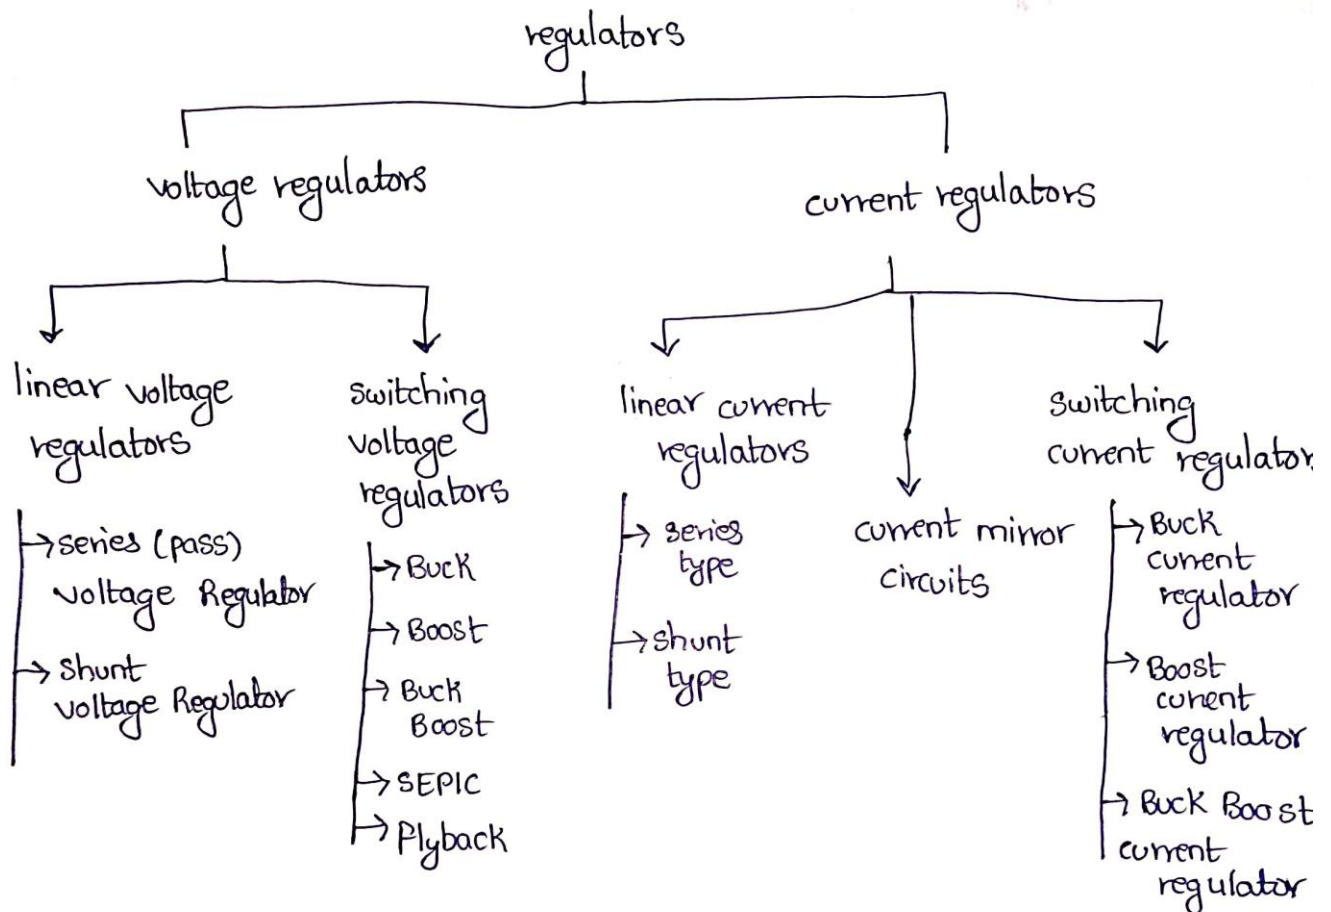 regulators
voltage regulators
current regulators
linear voltage
regulators
series (pass)
voltage Regulator
shunt
voltage Regulator
switching
voltage
regulators
Buck
Boost
Buck
Boost
SEPIC
Flyback
linear current
regulators
series
type
shunt
type
current mirror
circuits
switching
current regulator
Buck
current
regulator
Boost
current
regulator
Buck Boost
current
regulator